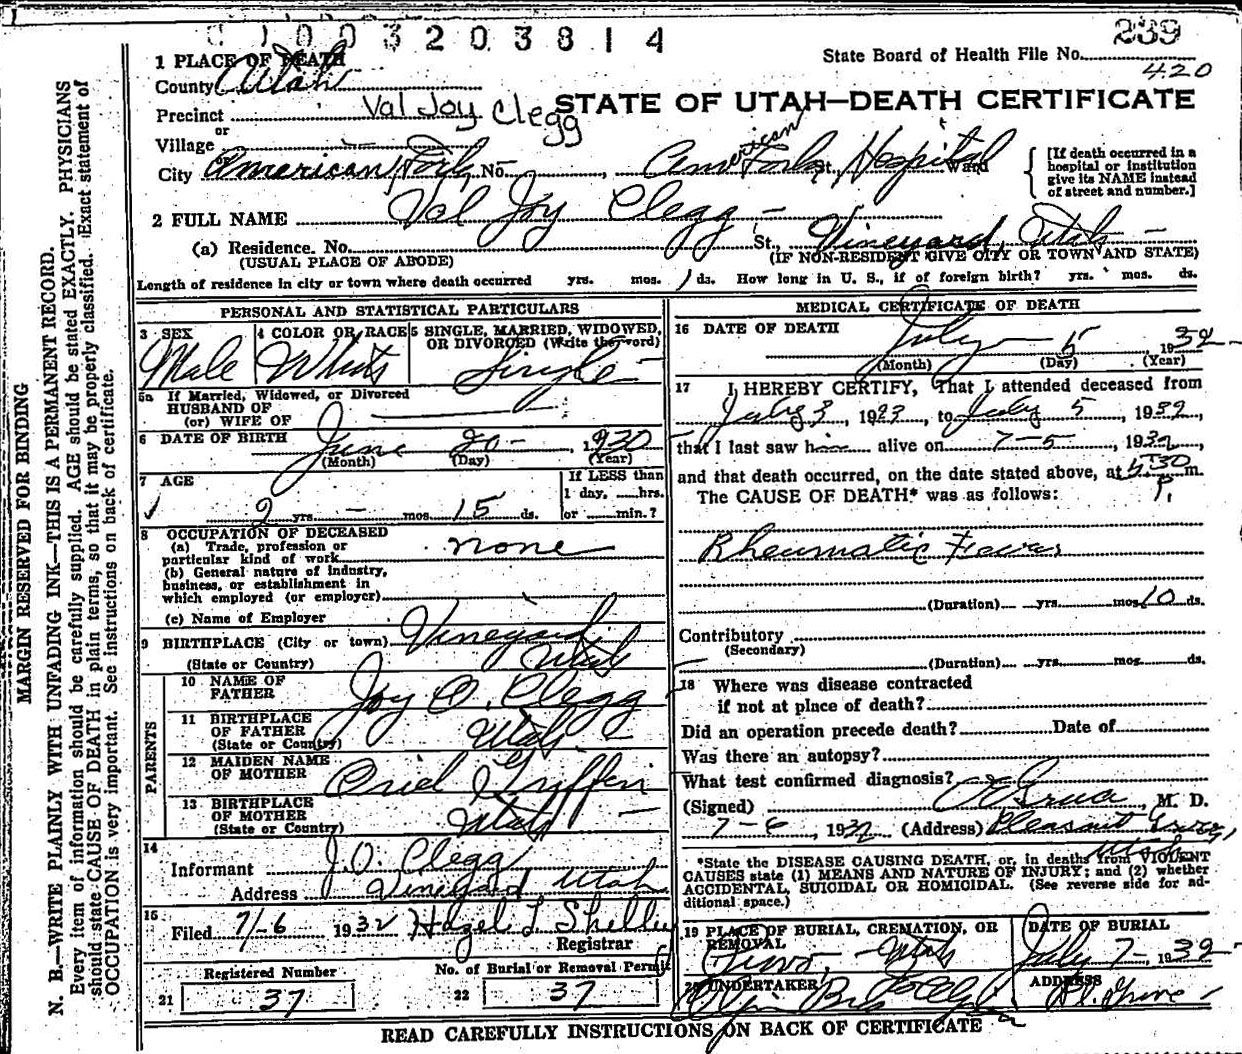 0 1 0 0 3 2 0 3 8 1 4
239
State Board of Health File No.
420
1 PLACE OF DEATH
County Utah
STATE OF UTAH—DEATH CERTIFICATE
Precinct Val Joy Clegg
or
Village
or
City American Fork No. American Fork St., Hospital Ward
[If death occurred in a hospital or institution give its NAME instead of street and number.]
2 FULL NAME Val Joy Clegg
(a) Residence. No. St., Vineyard, Utah
(USUAL PLACE OF ABODE) (IF NON-RESIDENT GIVE CITY OR TOWN AND STATE)
Length of residence in city or town where death occurred yrs. mos. 1 ds. How long in U. S., if of foreign birth? yrs. mos. ds.
PERSONAL AND STATISTICAL PARTICULARS
3 SEX 4 COLOR OR RACE 5 SINGLE, MARRIED, WIDOWED, OR DIVORCED (Write the word)
Male White Single
5a If Married, Widowed, or Divorced
HUSBAND OF
(or) WIFE OF
6 DATE OF BIRTH June 20 - 1930
(Month) (Day) (Year)
7 AGE
2 yrs. - mos. 15 ds.
If LESS than
1 day, hrs.
or min.?
8 OCCUPATION OF DECEASED
(a) Trade, profession or
particular kind of work none
(b) General nature of industry,
business, or establishment in
which employed (or employer)
(c) Name of Employer
9 BIRTHPLACE (City or town) Vineyard
(State or Country) Utah
PARENTS
10 NAME OF FATHER Joy O. Clegg
11 BIRTHPLACE OF FATHER
(State or Country) Utah
12 MAIDEN NAME OF MOTHER Griffin
13 BIRTHPLACE OF MOTHER
(State or Country) Utah
14
Informant J.O. Clegg
Address Vineyard Utah
15
Filed 7-6 1932 Hazel L Shelley
Registrar
Registered Number
21 37
No. of Burial or Removal Permit
22 37
MEDICAL CERTIFICATE OF DEATH
16 DATE OF DEATH July 5 1932
(Month) (Day) (Year)
17 I HEREBY CERTIFY, That I attended deceased from
July 3, 1933, to July 5, 1932,
that I last saw him alive on 7-5, 1932,
and that death occurred, on the date stated above, at 5:30 m.
P.
The CAUSE OF DEATH* was as follows:
Rheumatic Fever
(Duration) yrs. mos. 10 ds.
Contributory
(Secondary)
(Duration) yrs. mos. ds.
18 Where was disease contracted
if not at place of death?
Did an operation precede death? Date of
Was there an autopsy?
What test confirmed diagnosis?
(Signed) Grua, M. D.
7-6, 1932 (Address) Pleasant Grove,
Utah
*State the DISEASE CAUSING DEATH, or, in deaths from VIOLENT
CAUSES state (1) MEANS AND NATURE OF INJURY; and (2) whether
ACCIDENTAL, SUICIDAL OR HOMICIDAL. (See reverse side for ad-
ditional space.)
19 PLACE OF BURIAL, CREMATION, OR REMOVAL
Provo, Utah
DATE OF BURIAL
July 7 - 1932
20 UNDERTAKER
Olpin Bros
ADDRESS
Pl. Grove
READ CAREFULLY INSTRUCTIONS ON BACK OF CERTIFICATE
MARGIN RESERVED FOR BINDING
N. B.—WRITE PLAINLY WITH UNFADING INK—THIS IS A PERMANENT RECORD.
Every item of information should be carefully supplied. AGE should be stated EXACTLY. PHYSICIANS
should state CAUSE OF DEATH in plain terms, so that it may be properly classified. Exact statement of
OCCUPATION is very important. See instructions on back of certificate.